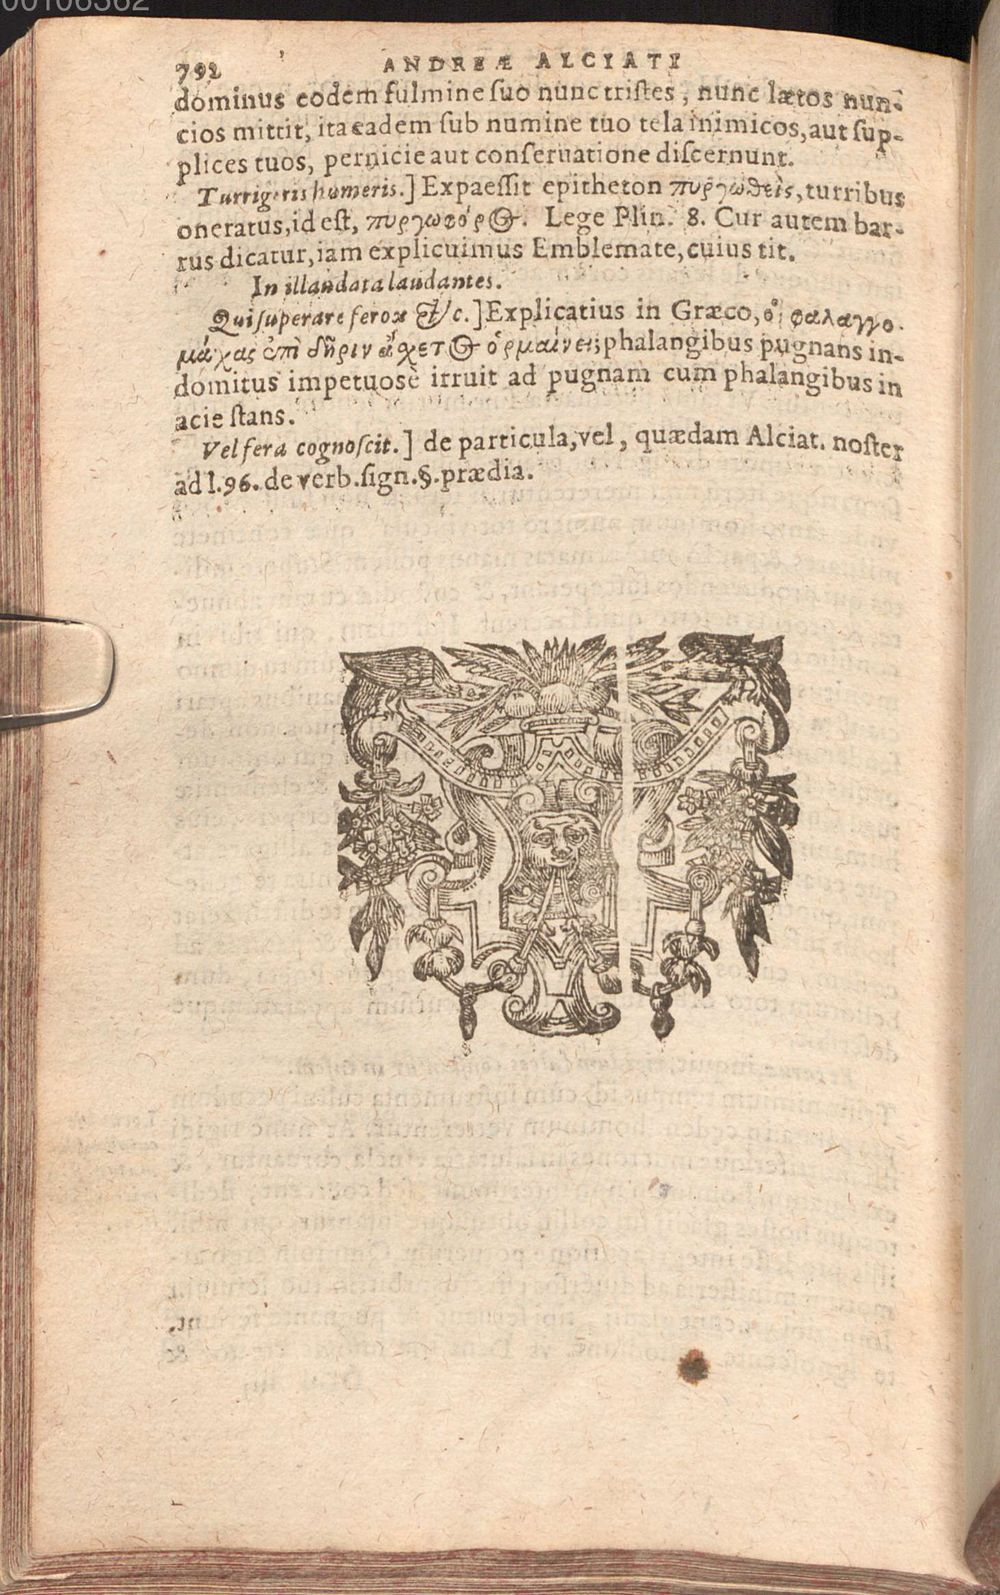 00106362
792 ANDREÆ ALCIATI
dominus eodem fulmine suo nunc tristes, nunc lætos nun-
cios mittit, ita eadem sub numine tuo tela inimicos, aut sup-
plices tuos, pernicie aut conseruatione discernunt.
Turrigeris humeris.] Expaessit epitheton πυργωθεὶς, turribus
oneratus, id est, πυργωφόρος. Lege Plin. 8. Cur autem bar-
rus dicatur, iam explicuimus Emblemate, cuius tit.
In illaudata laudantes.
Qui superare ferox &c.] Explicatius in Græco, οἱ φαλαγγο-
μάχας ἐπὶ δῆριν ἄχετος ὁρμαίνει; phalangibus pugnans in-
domitus impetuosè irruit ad pugnam cum phalangibus in
acie stans.
Vel fera cognoscit.] de particula, vel, quædam Alciat. noster
ad l. 96. de verb. sign. §. prædia.